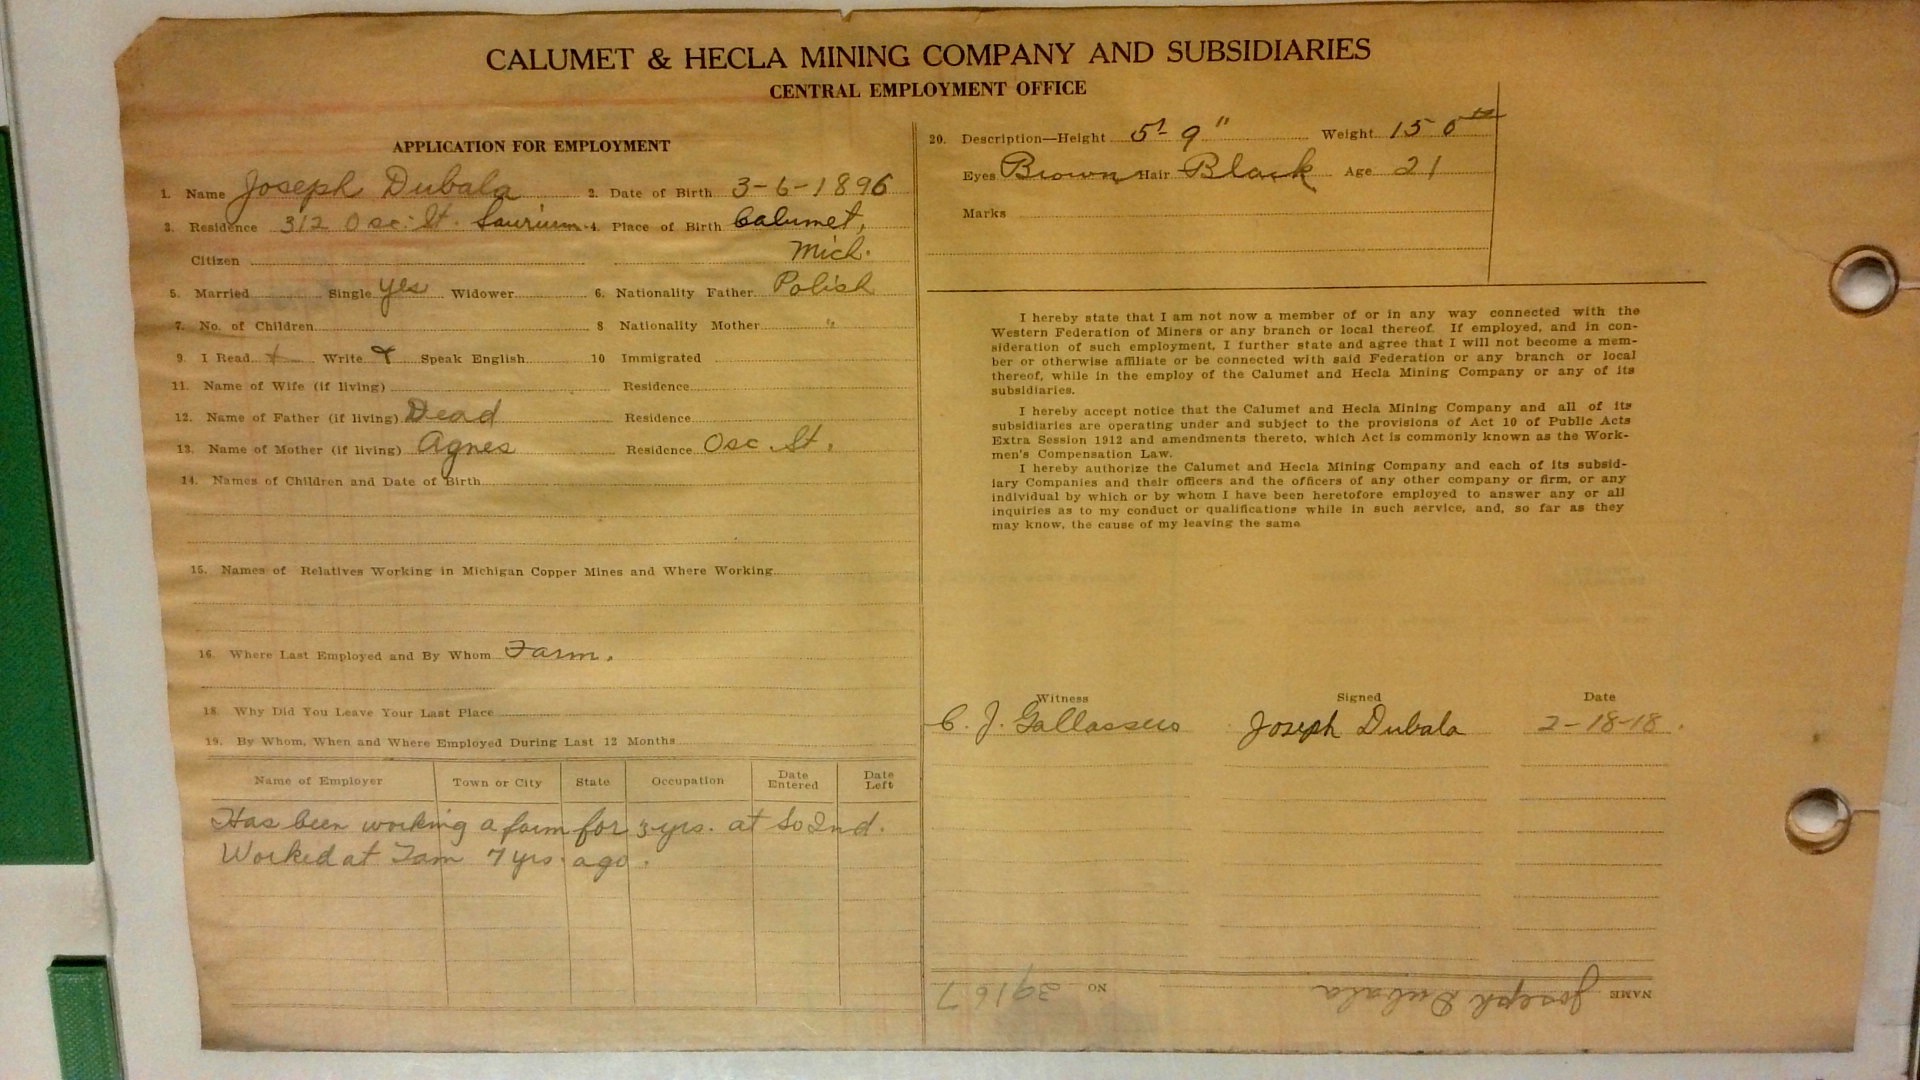 CALUMET & HECLA MINING COMPANY AND SUBSIDIARIES
CENTRAL EMPLOYMENT OFFICE
APPLICATION FOR EMPLOYMENT
1. Name Joseph Dubala 2. Date of Birth 3-6-1896
3. Residence 312 Osc. St. Laurium 4. Place of Birth Calumet,
Citizen Mich.
5. Married Single yes Widower 6. Nationality Father Polish
7. No. of Children 8 Nationality Mother "
9. I Read Write Speak English 10 Immigrated
11. Name of Wife (if living) Residence
12. Name of Father (if living) Dead Residence
13. Name of Mother (if living) Agnes Residence Osc St.
14. Names of Children and Date of Birth
15. Names of Relatives Working in Michigan Copper Mines and Where Working
16. Where Last Employed and By Whom Farm.
18. Why Did You Leave Your Last Place
19. By Whom, When and Where Employed During Last 12 Months
Name of Employer Town or City State Occupation Date Entered Date Left
Has been working a farm for 3 yrs. at So Ind.
Worked at Tam 7 yrs. ago.
20. Description—Height 5' 9" Weight 150
Eyes Brown Hair Black Age 21
Marks
I hereby state that I am not now a member of or in any way connected with the
Western Federation of Miners or any branch or local thereof. If employed, and in con-
sideration of such employment, I further state and agree that I will not become a mem-
ber or otherwise affiliate or be connected with said Federation or any branch or local
thereof, while in the employ of the Calumet and Hecla Mining Company or any of its
subsidiaries.
I hereby accept notice that the Calumet and Hecla Mining Company and all of its
subsidiaries are operating under and subject to the provisions of Act 10 of Public Acts
Extra Session 1912 and amendments thereto, which Act is commonly known as the Work-
men's Compensation Law.
I hereby authorize the Calumet and Hecla Mining Company and each of its subsid-
iary Companies and their officers and the officers of any other company or firm, or any
individual by which or by whom I have been heretofore employed to answer any or all
inquiries as to my conduct or qualifications while in such service, and, so far as they
may know, the cause of my leaving the same
Witness Signed Date
C. J. Joseph Dubala 2-18-18.
NAME Joseph Dubala NO 39167